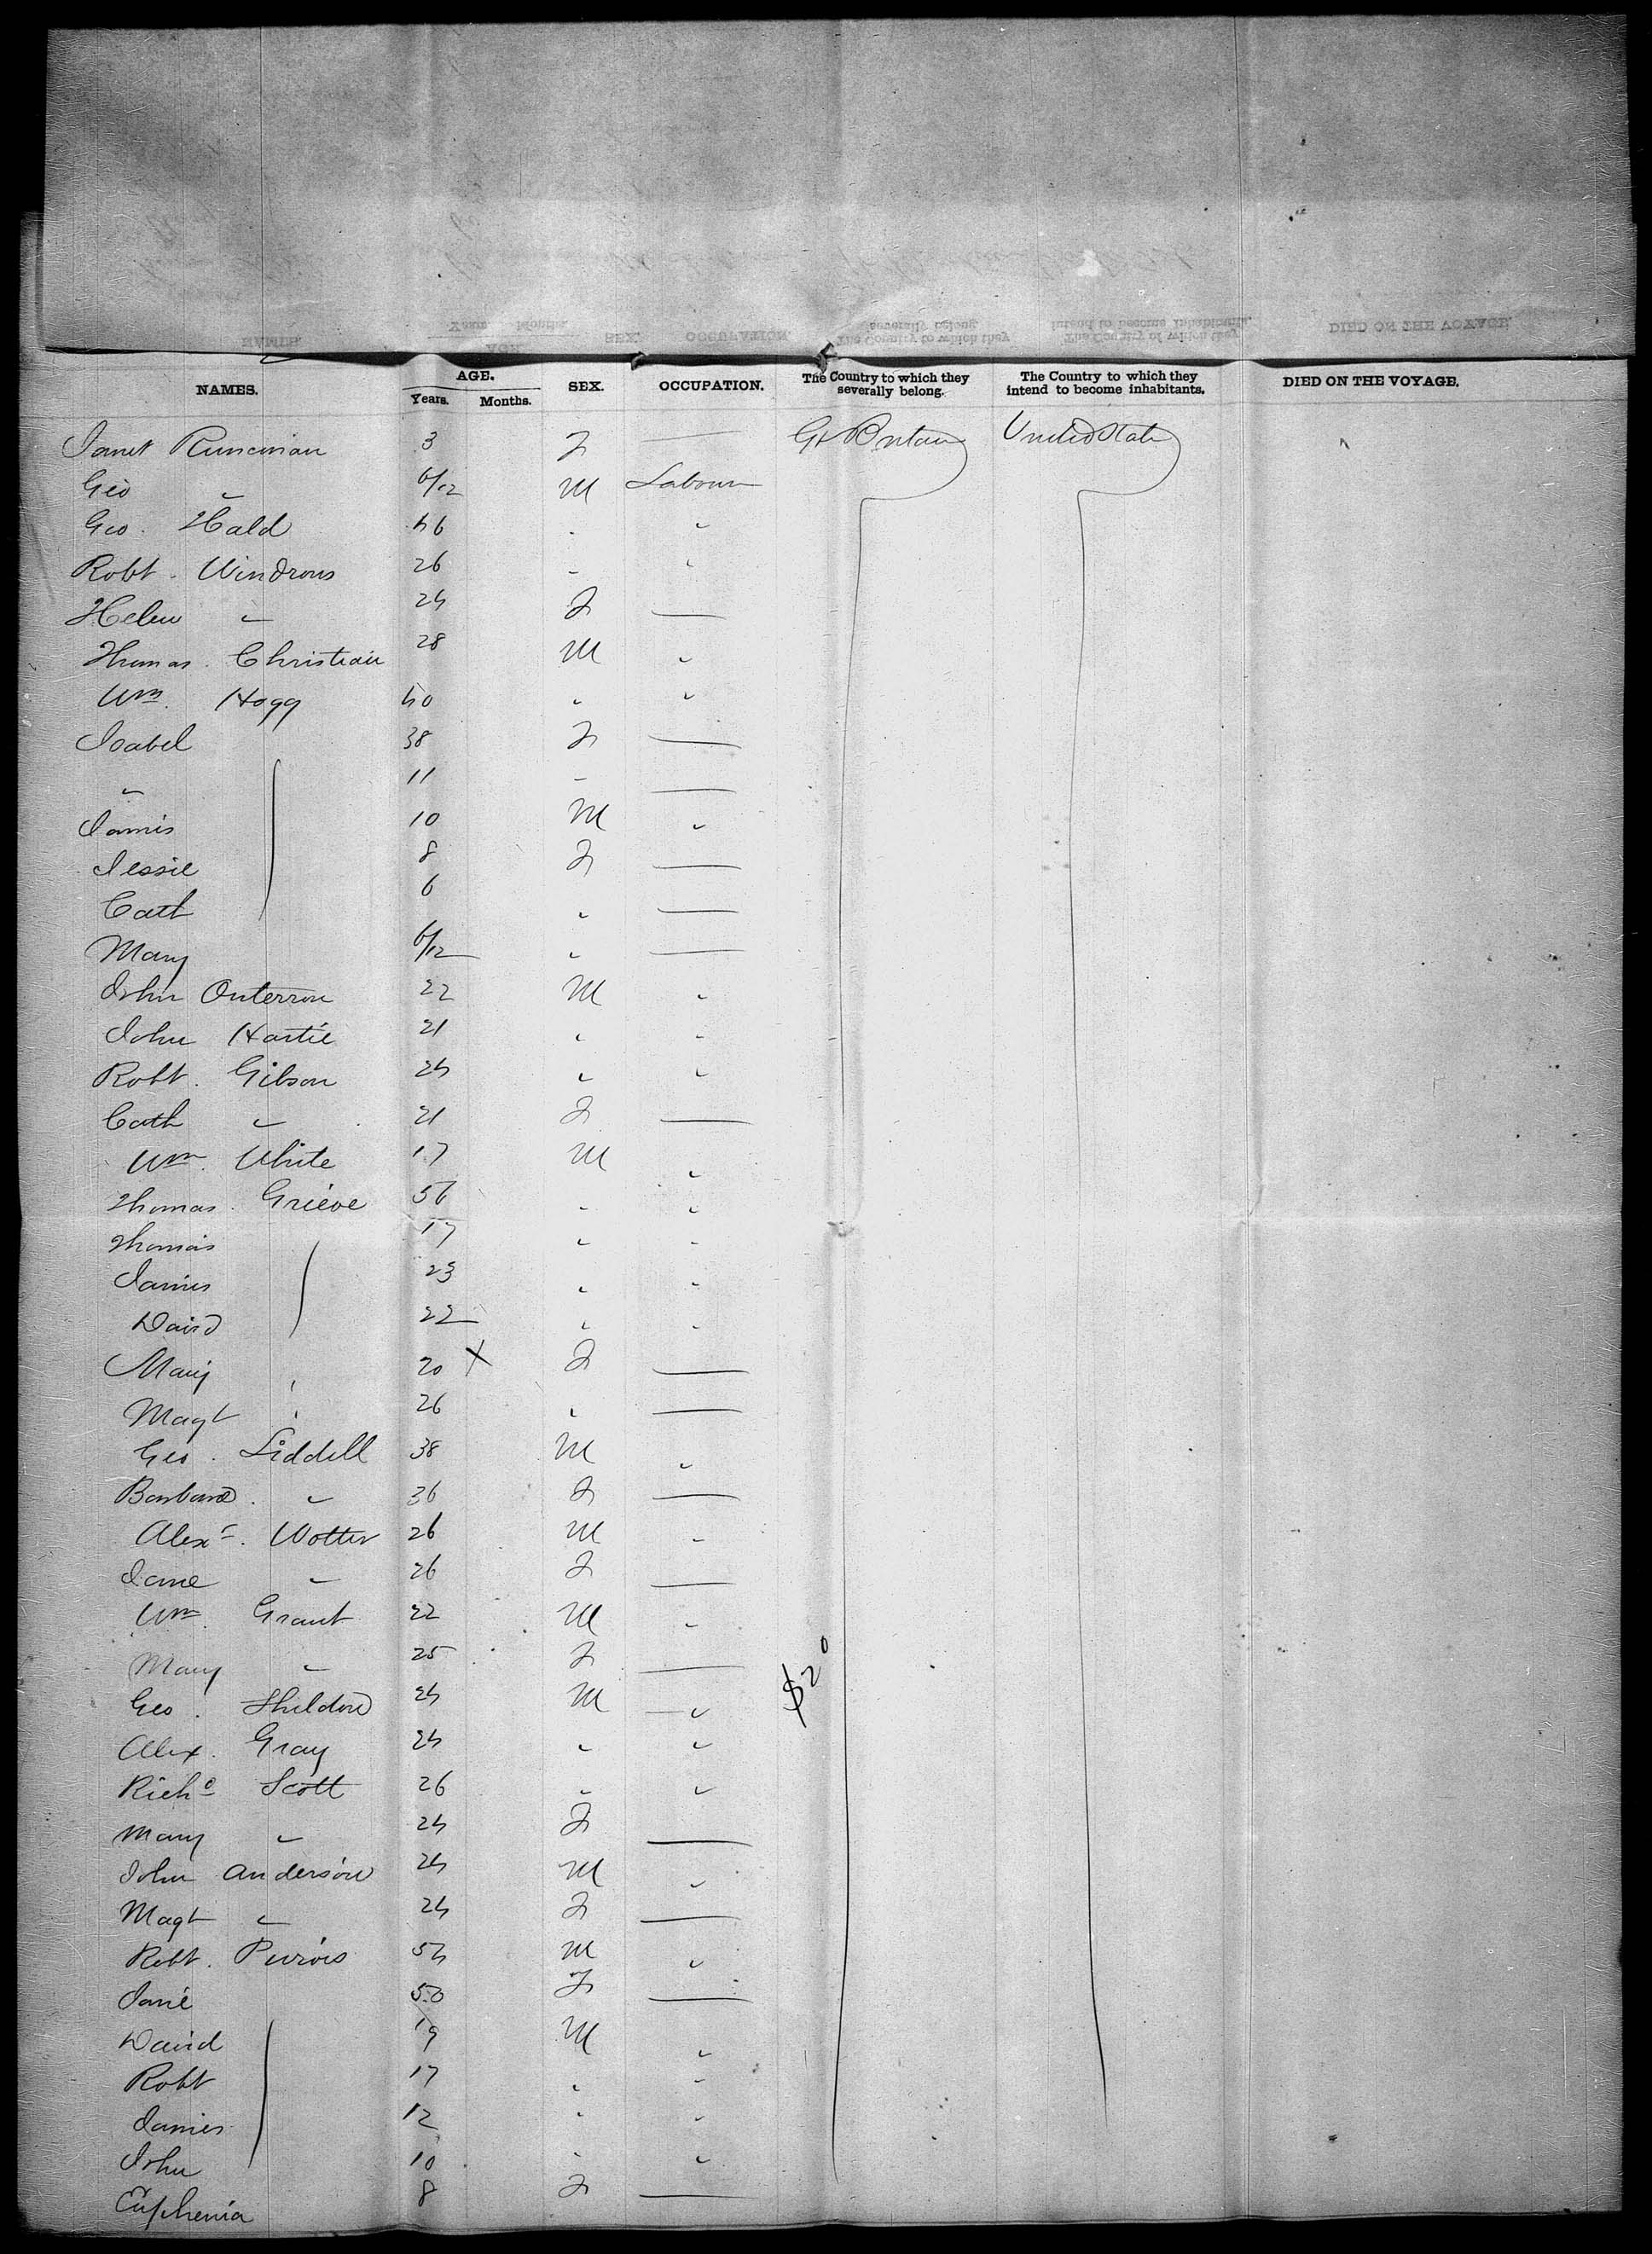 NAMES. AGE. Years. Months. SEX. OCCUPATION. The Country to which they severally belong. The Country to which they intend to become inhabitants. DIED ON THE VOYAGE.
Janet Runciman 3 F — Gt Britain United States
Geo " 6/12 M Labourer
Geo. Hald 46 " "
Robt. Windrous 26 " "
Helen " 24 F —
Thomas. Christian 28 M "
Wm. Hogg 40 " "
Isabel 38 F —
" 11 " —
James 10 M "
Jessie 8 F —
Cath 6 " —
Mary 6/12 " —
John 22 M "
John Hastie 21 " "
Robt. Gibson 24 " "
Cath " 21 F —
Wm. White 17 M "
Thomas. Grieve 56 " "
Thomas 17 " "
James 23 " "
David 22 " "
Mary " 20 X F —
Magt " 26 " —
Geo. Liddell 38 M "
Barbara. " 36 F —
Alexr. Wotter 26 M "
Jane " 26 F —
Wm. Grant 22 M "
Mary " 25 F —
Geo. Sheldon 24 M " $20
Alex. Gray 24 " "
Richd Scott 26 " "
Mary " 24 F —
John Anderson 24 M "
Magt " 24 F —
Robt. Purvis 54 M "
Jane 50 F —
David 19 M "
Robt 17 " "
James 12 " "
John 10 " "
Euphemia 8 F —